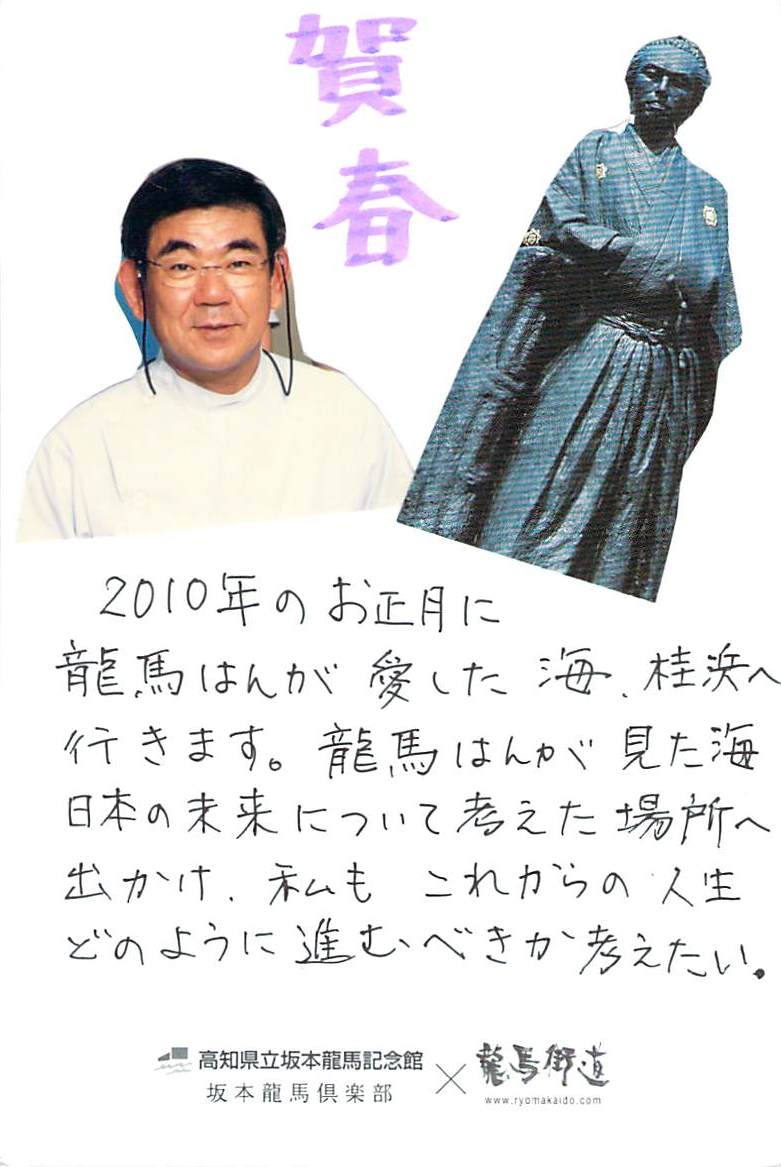 賀春
2010年のお正月に
龍馬はんが愛した海、桂浜へ
行きます。龍馬はんが見た海
日本の未来について考えた場所へ
出かけ、私もこれからの人生
どのように進むべきか考えたい。
高知県立坂本龍馬記念館
坂本龍馬倶楽部
×
龍馬街道
www.ryomakaido.com